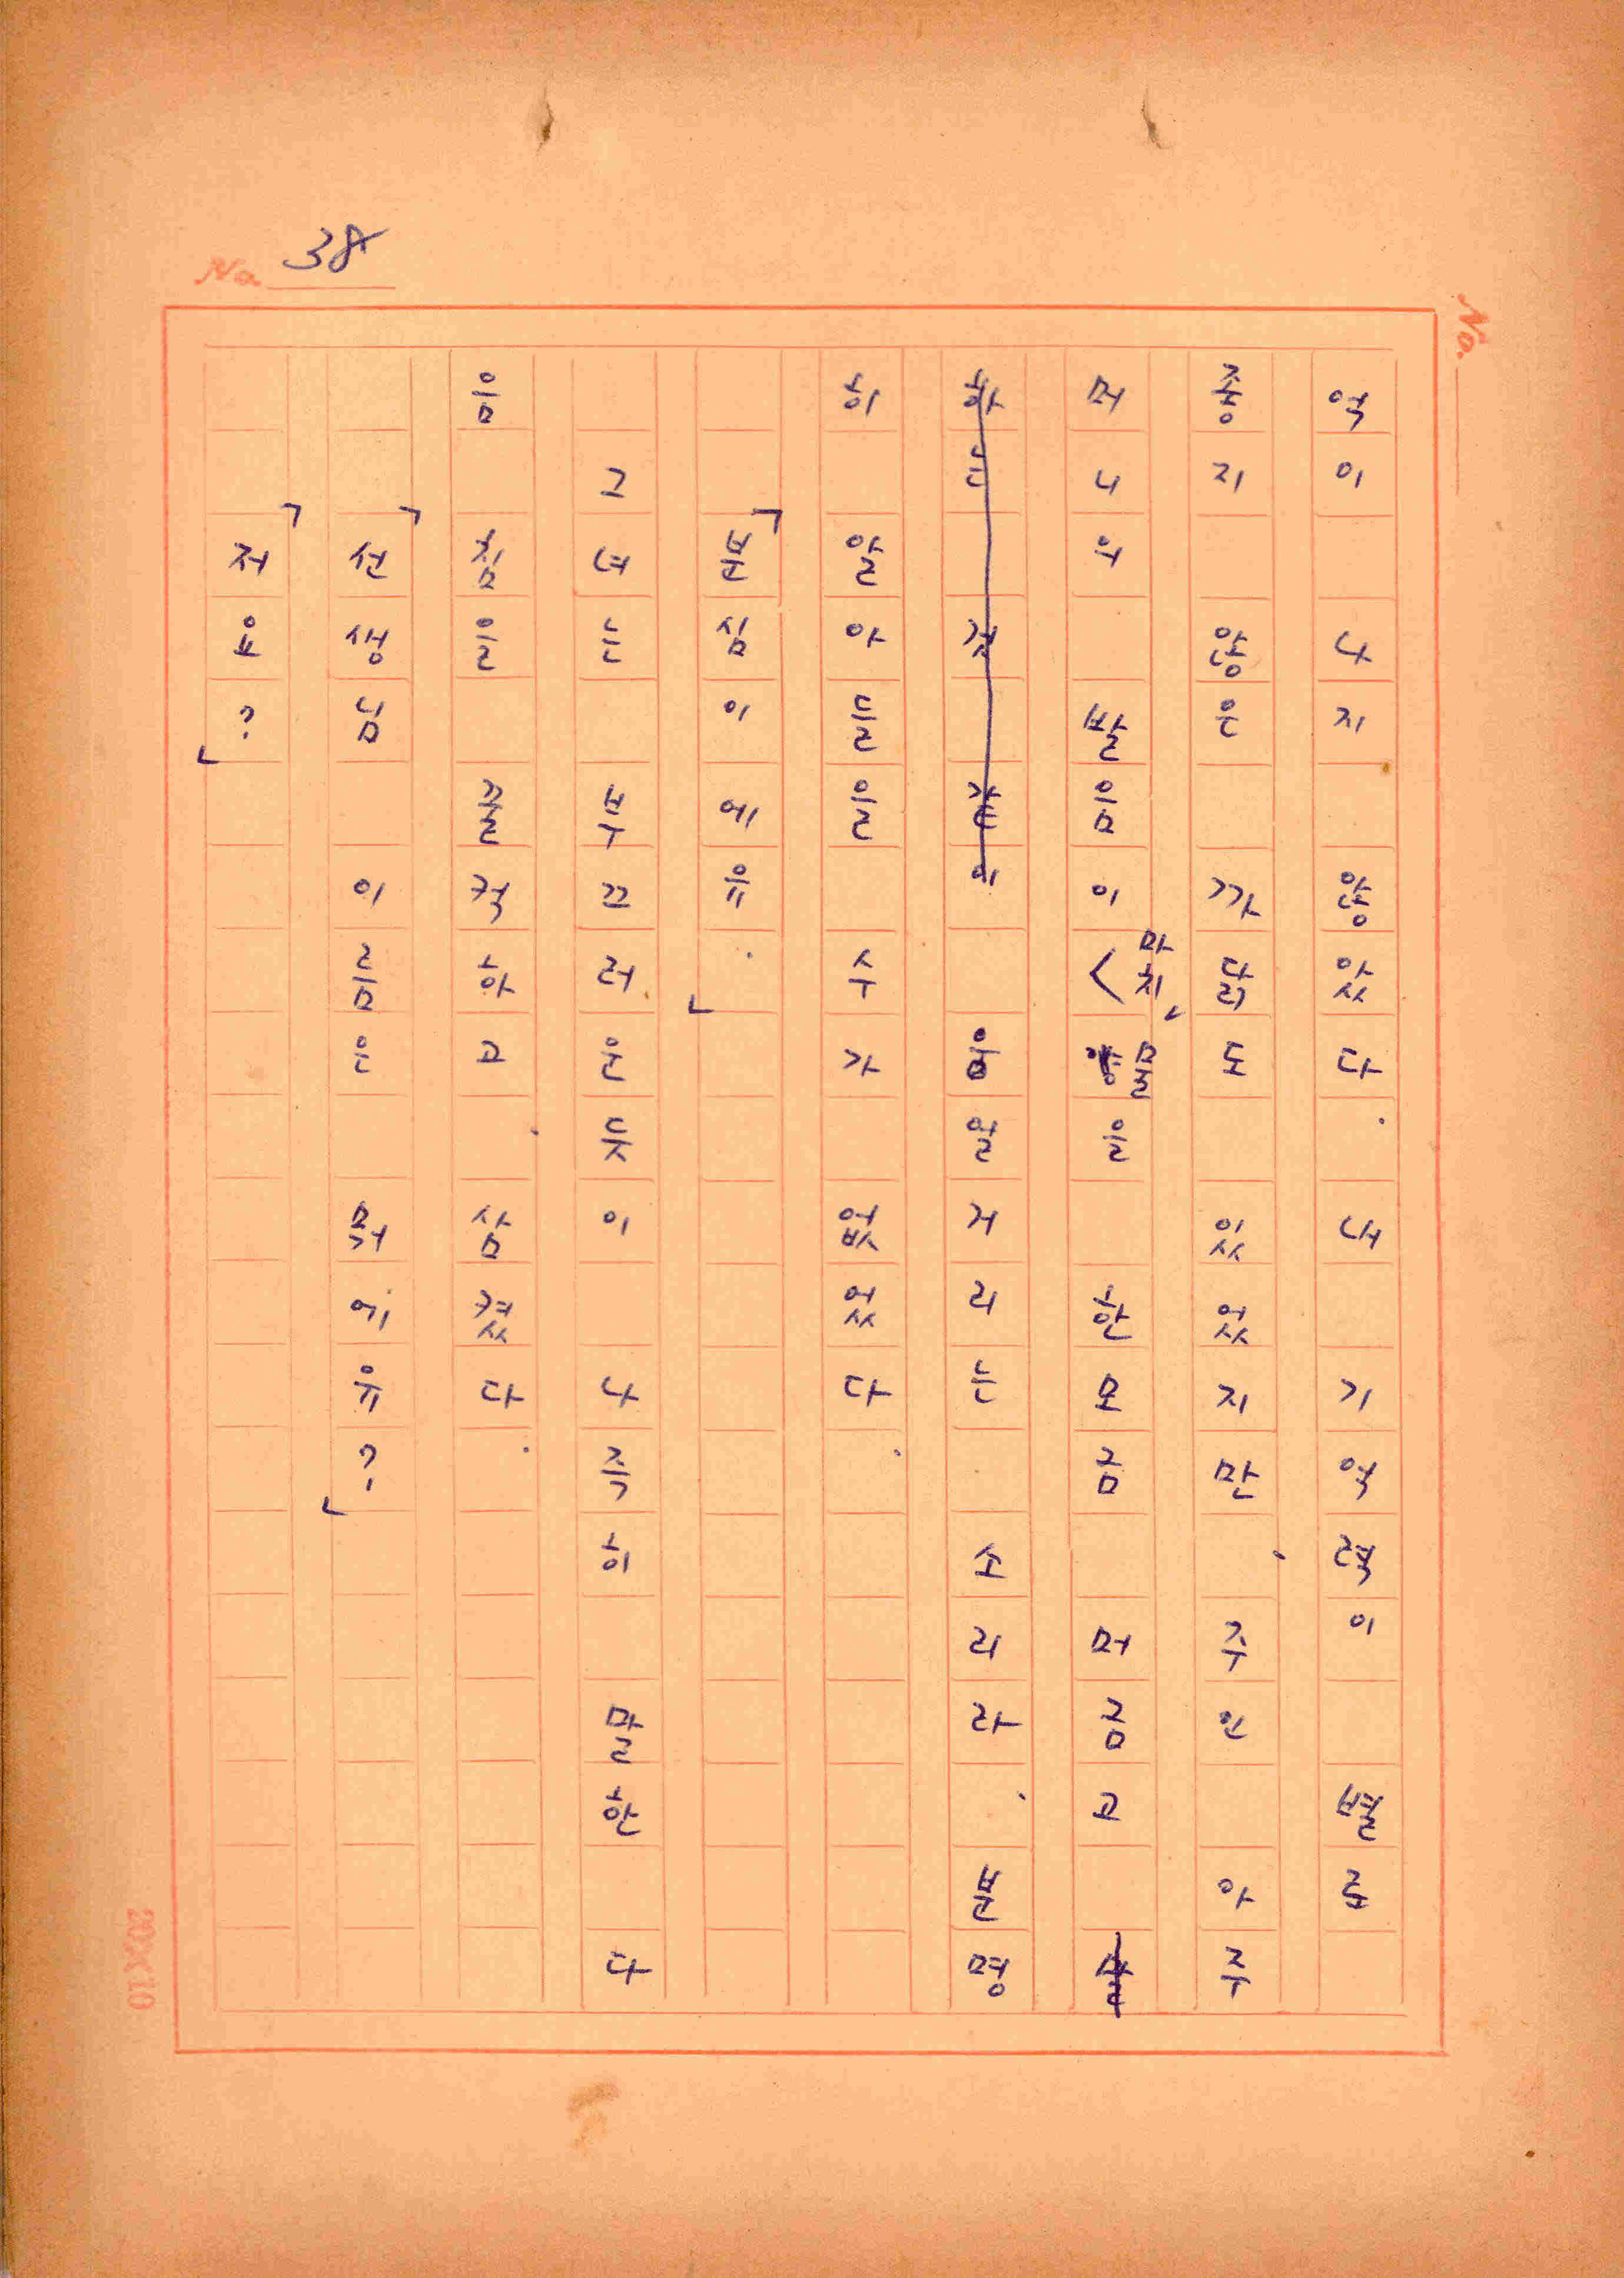 No. 38
No.
억이 나지 않았다. 내 기억력이 별로
좋지 않은 까닭도 있었지만, 주인 아주
머니의 발음이 마치, 물을 한모금 머금고
하는 것 같이 웅얼거리는 소리라, 분명
히 알아들을 수가 없었다.
「분심이에유.」
그녀는 부끄러운듯이 나즉히 말한 다
음 침을 꿀컥하고, 삼켰다.
「선생님 이름은 뭐에유?」
「저요?」
20X10